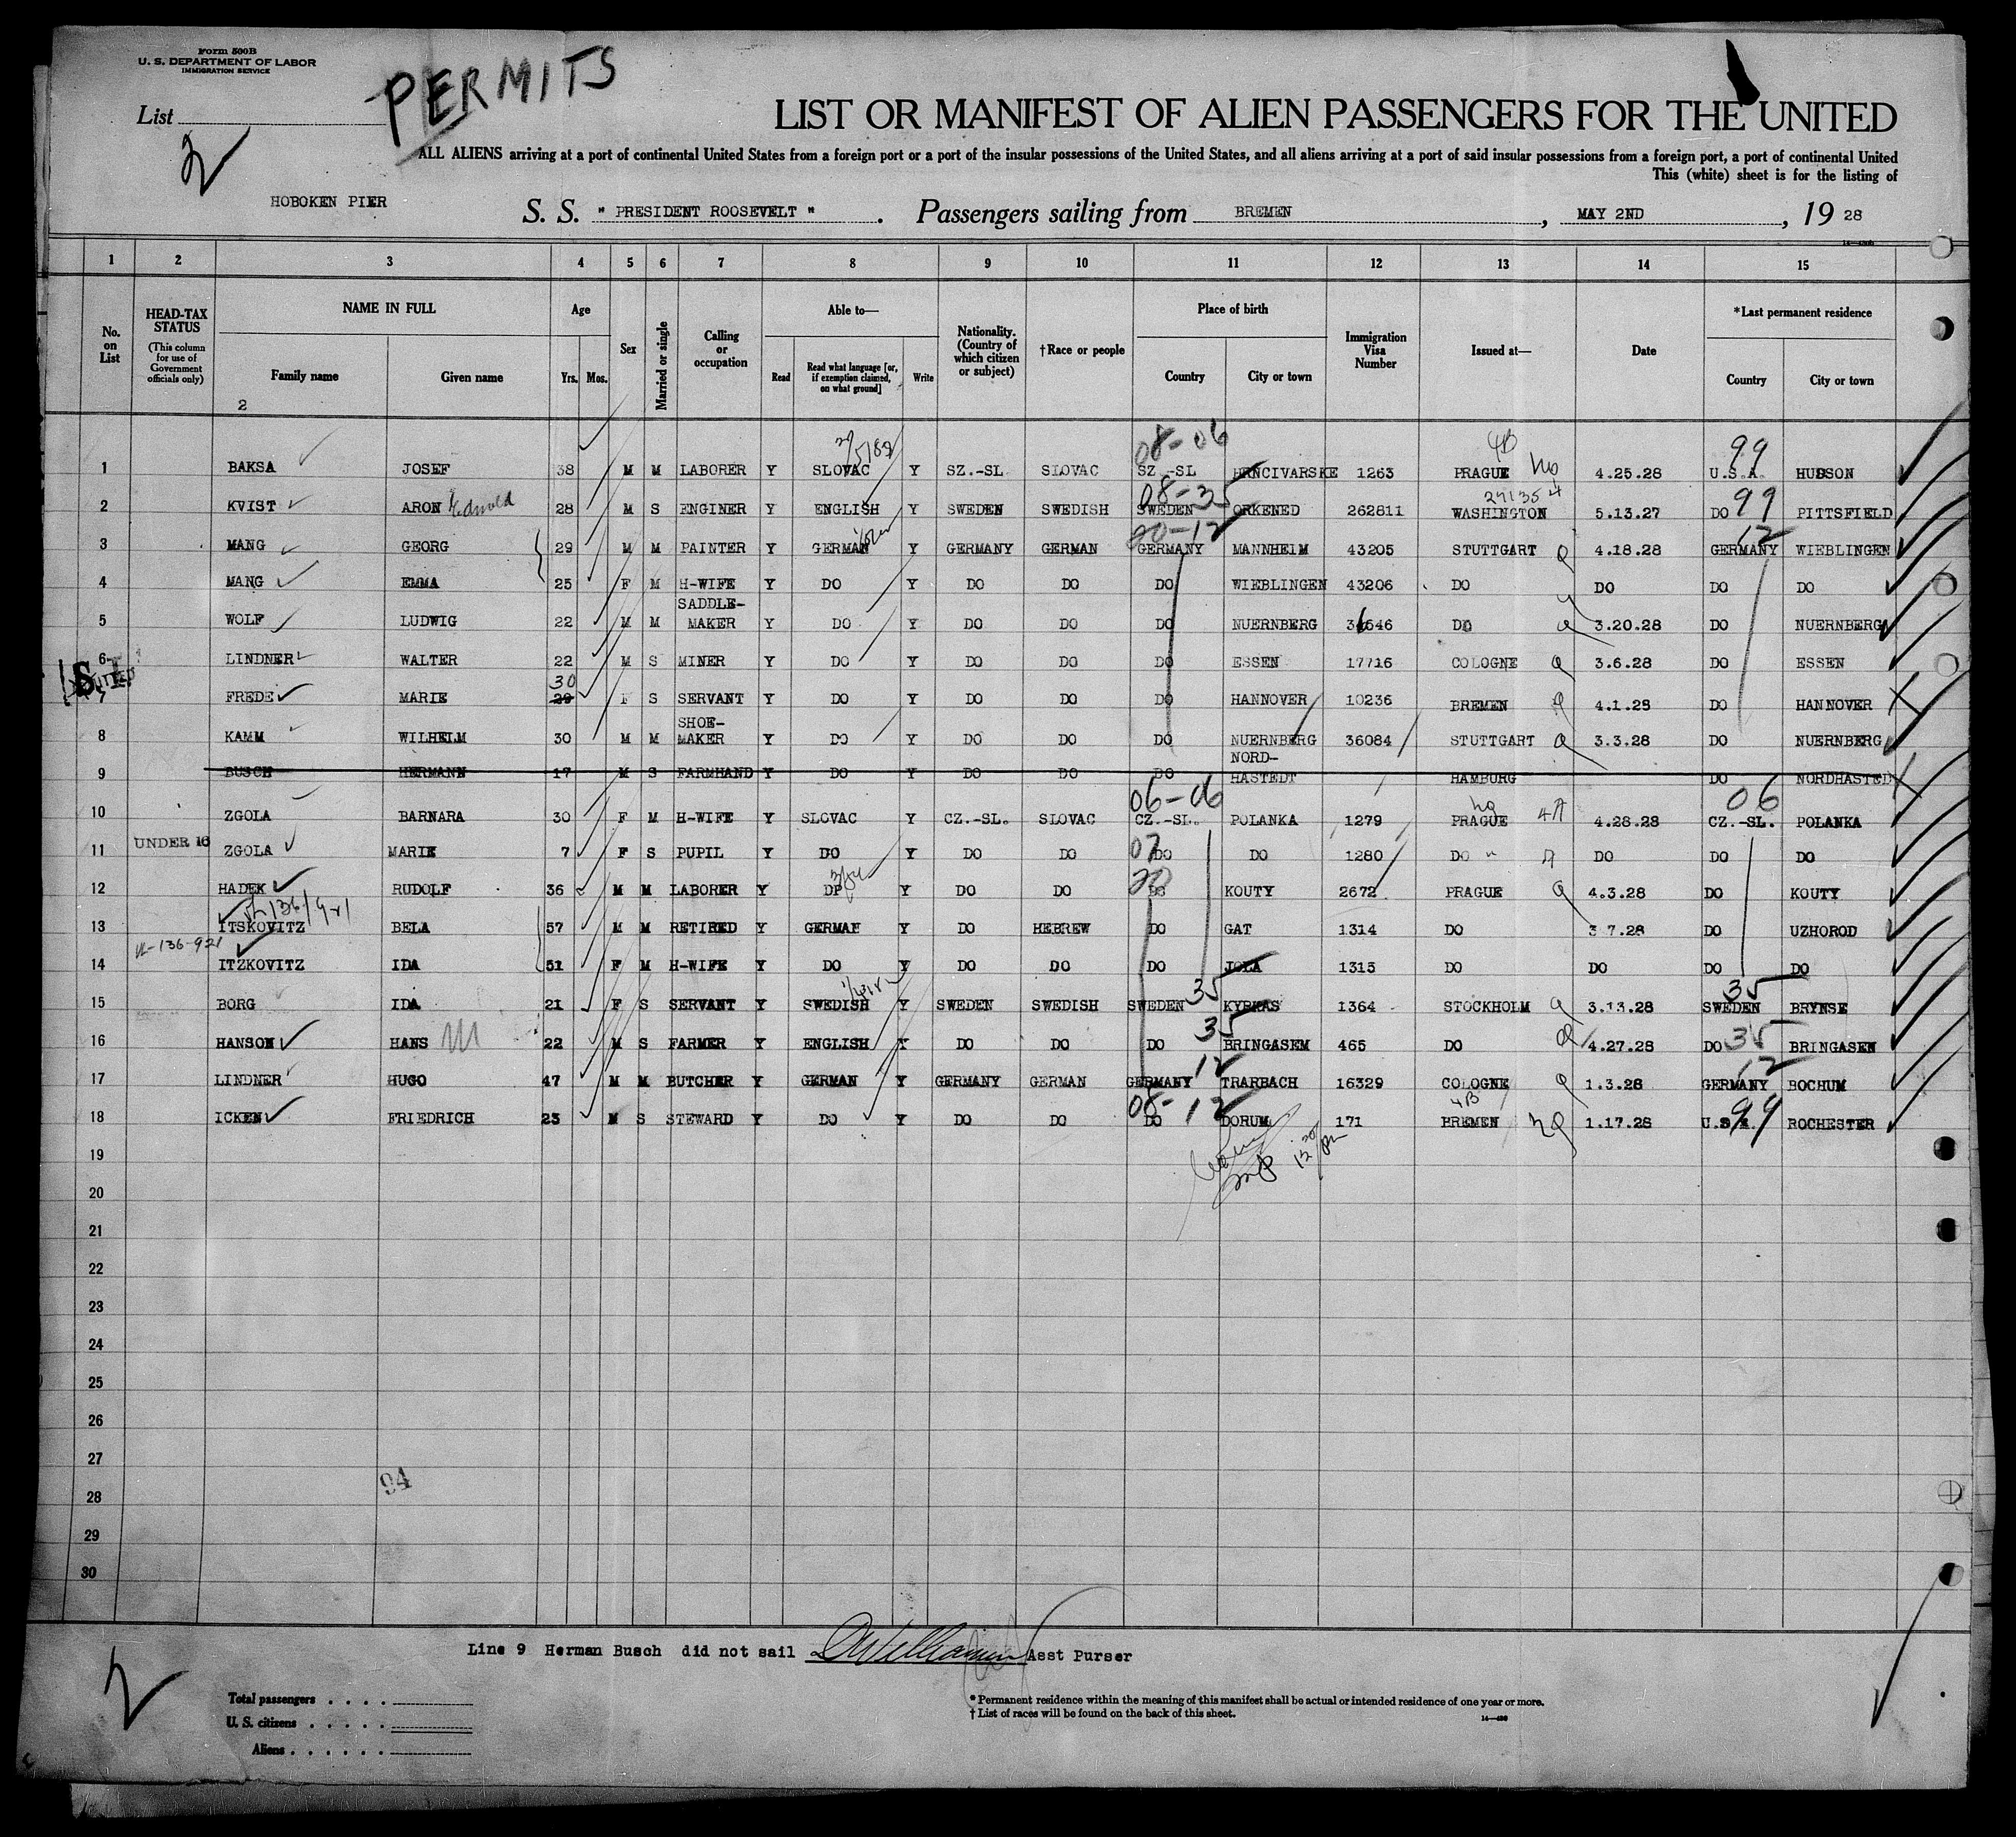 Form 500B
U. S. DEPARTMENT OF LABOR
IMMIGRATION SERVICE
PERMITS
List
2
LIST OR MANIFEST OF ALIEN PASSENGERS FOR THE UNITED
ALL ALIENS arriving at a port of continental United States from a foreign port or a port of the insular possessions of the United States, and all aliens arriving at a port of said insular possessions from a foreign port, a port of continental United
This (white) sheet is for the listing of
HOBOKEN PIER
S. S. " PRESIDENT ROOSEVELT ". Passengers sailing from BREMEN, MAY 2ND, 19 28
1 2 3 4 5 6 7 8 9 10 11 12 13 14 15
No. on List
HEAD-TAX STATUS
(This column for use of Government officials only)
NAME IN FULL
Family name
Given name
Age
Yrs. Mos.
Sex
Married or single
Calling or occupation
Able to—
Read
Read what language [or, if exemption claimed, on what ground]
Write
Nationality. (Country of which citizen or subject)
†Race or people
Place of birth
Country
City or town
Immigration Visa Number
Issued at—
Date
*Last permanent residence
Country
City or town
2
08-06 4B 99
1 BAKSA JOSEF 38 M M LABORER Y SLOVAC Y SZ.-SL SLOVAC SZ.-SL HRNCIVARSKE 1263 PRAGUE 4.25.28 U.S.A. HUDSON
08-35 99
2 KVIST ARON 28 M S ENGINER Y ENGLISH Y SWEDEN SWEDISH SWEDEN ORKENED 262811 WASHINGTON 5.13.27 DO PITTSFIELD
20-12 12
3 MANG GEORG 29 M M PAINTER Y GERMAN Y GERMANY GERMAN GERMANY MANNHEIM 43205 STUTTGART 4.18.28 GERMANY WIEBLINGEN
4 MANG EMMA 25 F M H-WIFE Y DO Y DO DO DO WIEBLINGEN 43206 DO DO DO DO
5 WOLF LUDWIG 22 M M SADDLE-MAKER Y DO Y DO DO DO NUERNBERG 36646 DO 3.20.28 DO NUERNBERG
6 LINDNER WALTER 22 M S MINER Y DO Y DO DO DO ESSEN 17716 COLOGNE 3.6.28 DO ESSEN
S.I.
30
7 FREDE MARIE 29 F S SERVANT Y DO Y DO DO DO HANNOVER 10236 BREMEN 4.1.28 DO HANNOVER
8 KAMM WILHELM 30 M M SHOE-MAKER Y DO Y DO DO DO NUERNBERG 36084 STUTTGART 3.3.28 DO NUERNBERG
9 BUSCH HERMANN 17 M S FARMHAND Y DO Y DO DO DO NORD-HASTEDT HAMBURG DO NORDHASTED
06-06 06
10 ZGOLA BARNARA 30 F M H-WIFE Y SLOVAC Y CZ.-SL. SLOVAC CZ.-SL. POLANKA 1279 PRAGUE 4.28.28 CZ.-SL. POLANKA
11 UNDER 16 ZGOLA MARIE 7 F S PUPIL Y DO Y DO DO DO DO 1280 DO DO DO DO
12 HADEK RUDOLF 36 M M LABORER Y DO Y DO DO DO KOUTY 2672 PRAGUE 4.3.28 DO KOUTY
13 ITSKOVITZ BELA 57 M M RETIRED Y GERMAN Y DO HEBREW DO GAT 1314 DO 3 7.28 DO UZHOROD
14 ITZKOVITZ IDA 51 F M H-WIFE Y DO Y DO DO DO JOLA 1315 DO DO DO DO
35 35
15 BORG IDA 21 F S SERVANT Y SWEDISH Y SWEDEN SWEDISH SWEDEN KYRKAS 1364 STOCKHOLM 3.13.28 SWEDEN BRYNSE
35 35
16 HANSON HANS 22 M S FARMER Y ENGLISH Y DO DO DO BRINGASEM 465 DO 4.27.28 DO BRINGASEN
12 12
17 LINDNER HUGO 47 M M BUTCHER Y GERMAN Y GERMANY GERMAN GERMANY TRARBACH 16329 COLOGNE 1.3.28 GERMANY BOCHUM
08-12 4B 99
18 ICKEN FRIEDRICH 23 M S STEWARD Y DO Y DO DO DO DORUM 171 BREMEN 1.17.28 U.S.A. ROCHESTER
19
20
21
22
23
24
25
26
27
94
28
29
30
Line 9 Herman Busch did not sail Asst Purser
2
Total passengers . . . .
U. S. citizens . . . . .
Aliens . . . . . .
* Permanent residence within the meaning of this manifest shall be actual or intended residence of one year or more.
† List of races will be found on the back of this sheet.